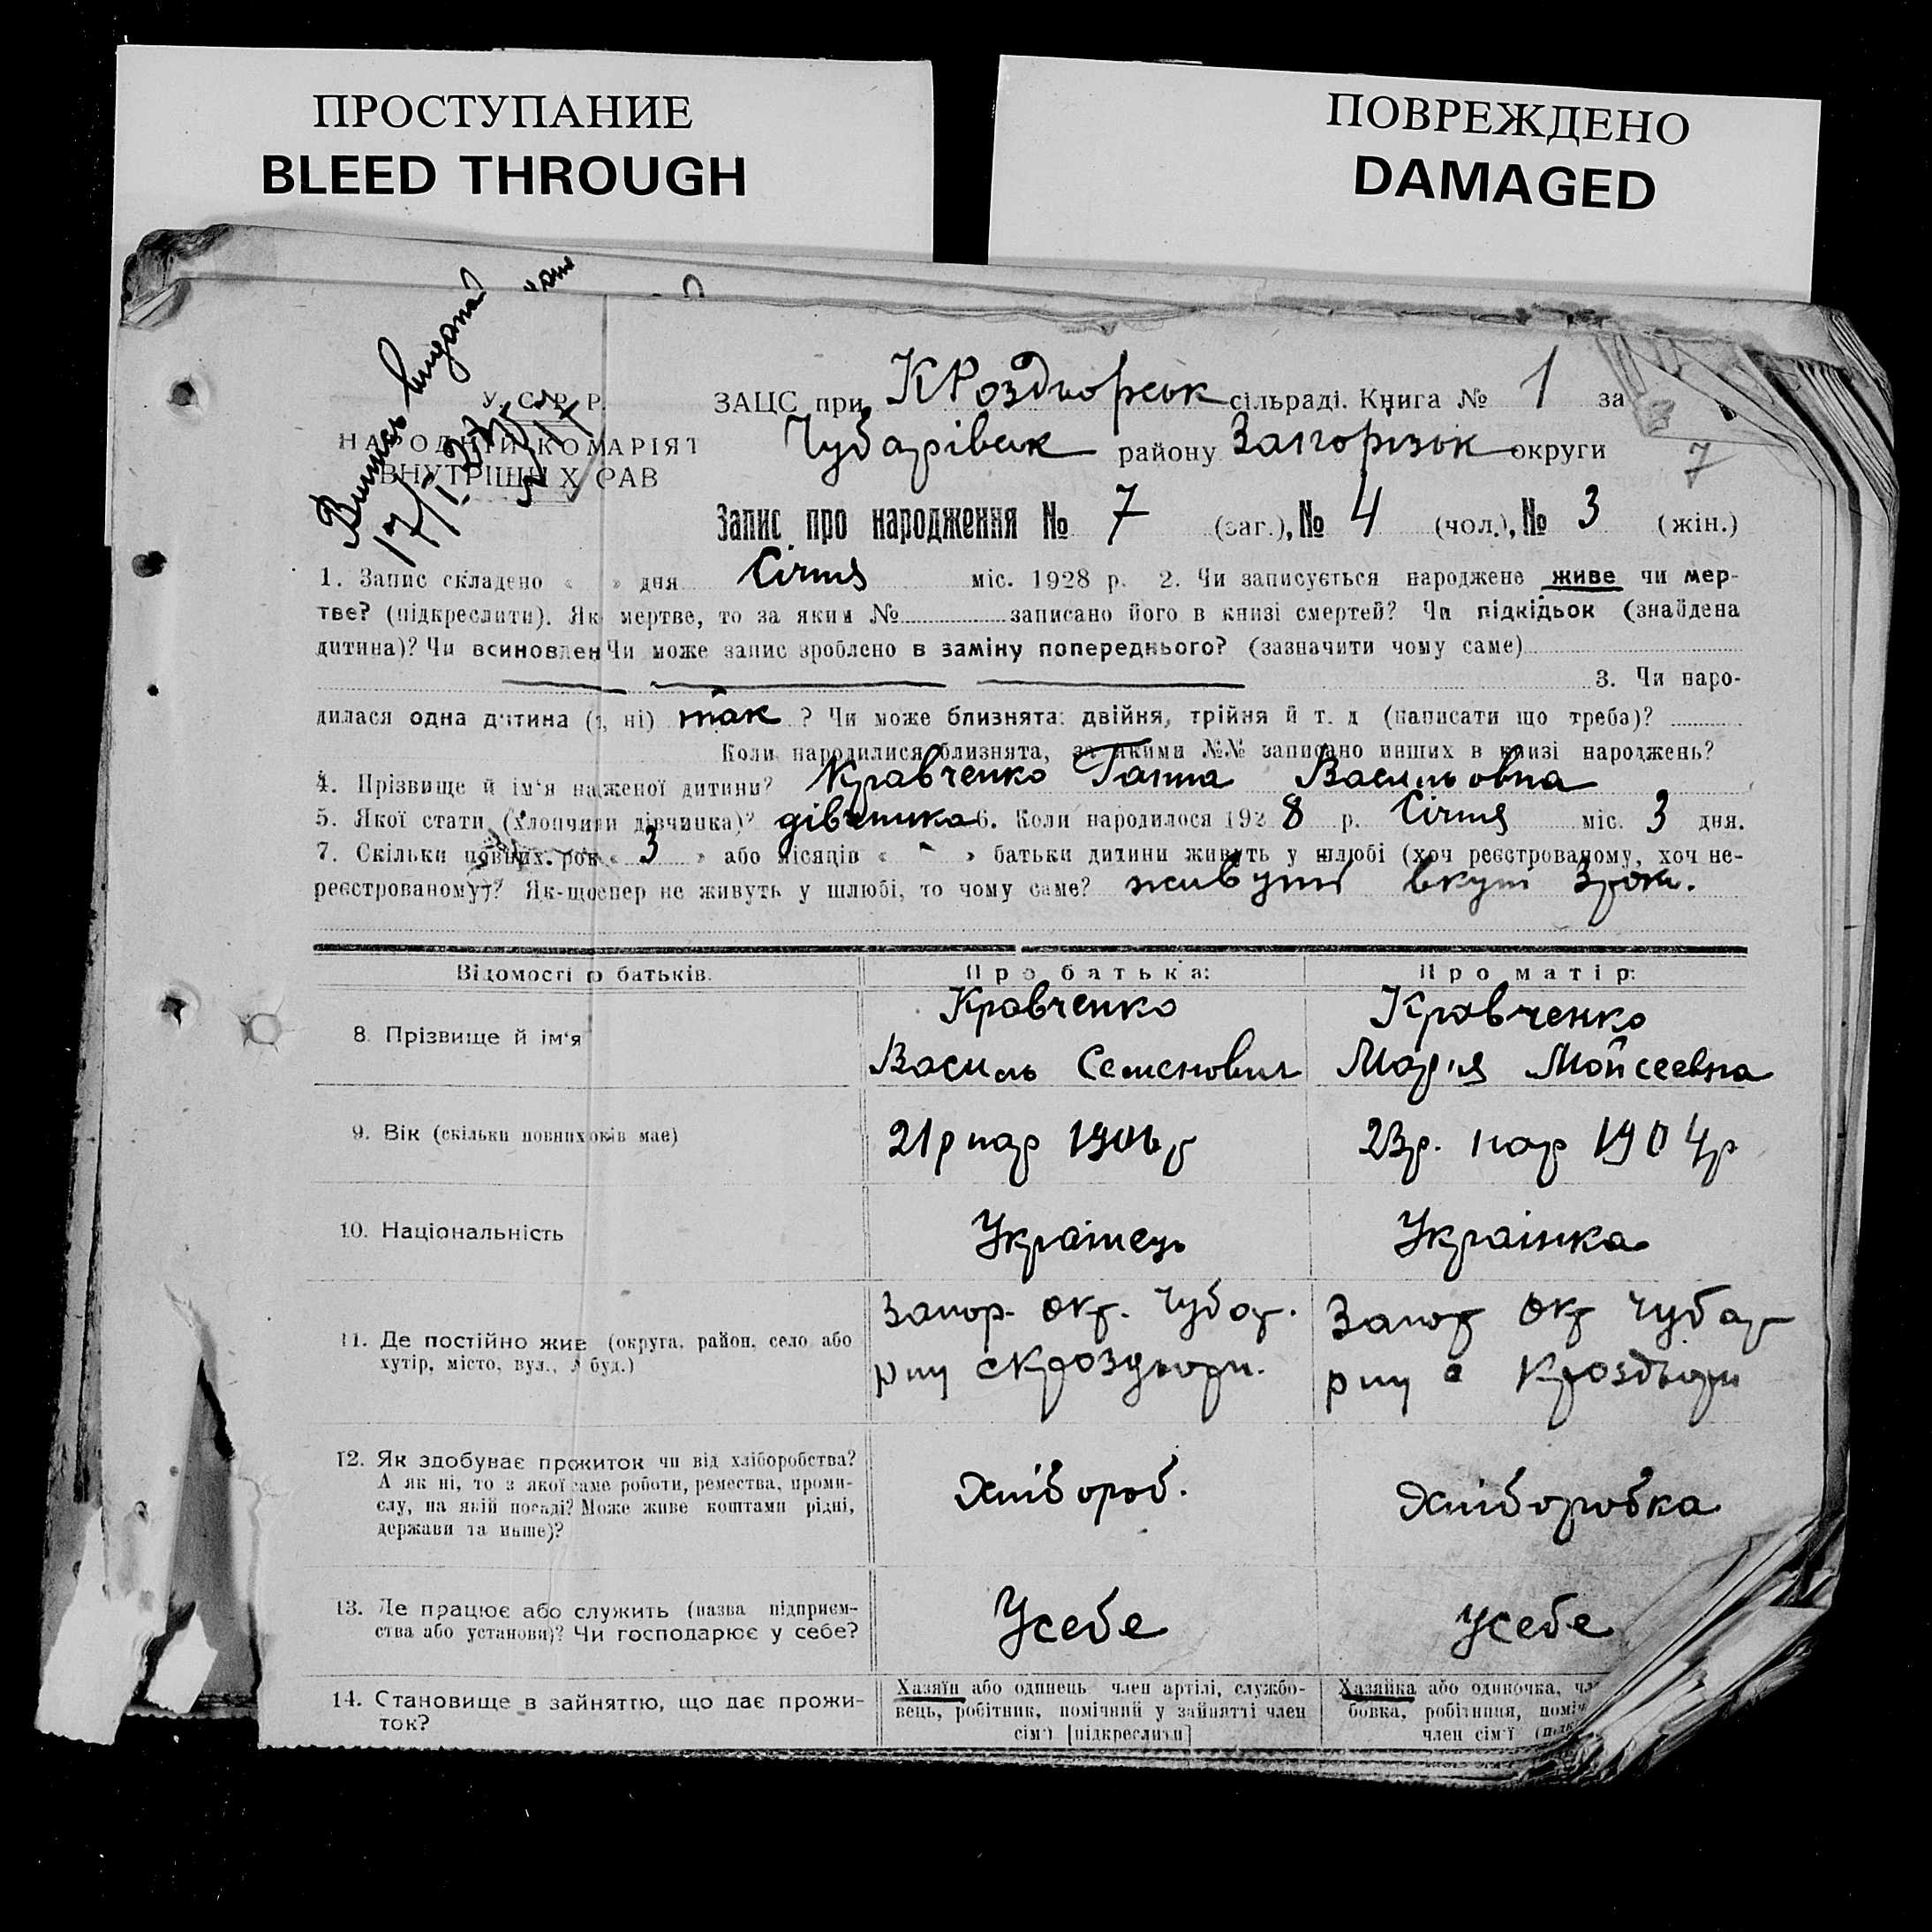 ПРОСТУПАНИЕ
BLEED THROUGH
ПОВРЕЖДЕНО
DAMAGED
Випись видана
17/I
У. С. Р. Р.
НАРОДНІЙ КОМАРІЯТ
ВНУТРІШНІХ РАВ
ЗАЦС при КРоздорськ сільраді. Книга № 1 за
Чубарівськ району Запорізьк округи 7
Запис про народження № 7 (заг.), № 4 (чол.), № 3 (жін.)
1. Запис складено « » дня Січня міс. 1928 р. 2. Чи записується народжене живе чи мер-
тве? (підкреслити). Як мертве, то за яким № записано його в книзі смертей? Чи підкідьок (знайдена
дитина)? Чи всиновлен Чи може запис зроблено в заміну попереднього? (зазначити чому саме)
3. Чи наро-
дилася одна дитина ( ні) так ? Чи може близнята: двійня, трійня й т. д (написати що треба)?
Коли народилися близнята, за якими №№ записано инших в книзі народжень?
4. Прізвище й ім'я на женої дитини? Кравченко Ганна Васильовна
5. Якої стати (хлопчики дівчинка)? дівчинка 6. Коли народилося 1928 р. Січня міс. 3 дня.
7. Скільки повних. рок « 3 » або місяців « - » батьки дитини живуть у шлюбі (хоч реєстрованому, хоч не-
реєстрованому)? Як-що пер не живуть у шлюбі, то чому саме? живуть вкупі 3 роки.
Відомості о батьків.
Про батька:
Про матір:
8. Прізвище й ім'я
Кравченко
Василь Семенович
Кравченко
Марія Мойсеевна
9. Вік (скільки повних оків має)
21 р нар 1906 р
23 р. нар 1904 р
10. Національність
Українець
Українка
11. Де постійно живе (округа, район, село або
хутір, місто, вул., буд.)
Запор. окр. Чубар.
рну с Кроздори.
Запор окр Чубар
рну с Кроздори
12. Як здобуває прожиток чи від хліборобства?
А як ні, то з якої саме роботи, ремества, проми-
слу, на якій посаді? Може живе коштами рідні,
держави та инше)?
Хлібороб.
Хліборобка
13. Де працює або служить (назва підприєм-
ства або установи)? Чи господарює у себе?
Усебе
Усебе
14. Становище в зайняттю, що дає прожи-
ток?
Хазяїн або одинець член артілі, службо-
вець, робітник, помічний у зайнятті член
сім'ї [підкреслити]
Хазяйка або одиночка, чл
бовка, робітниця, поміч
член сім'ї (підк